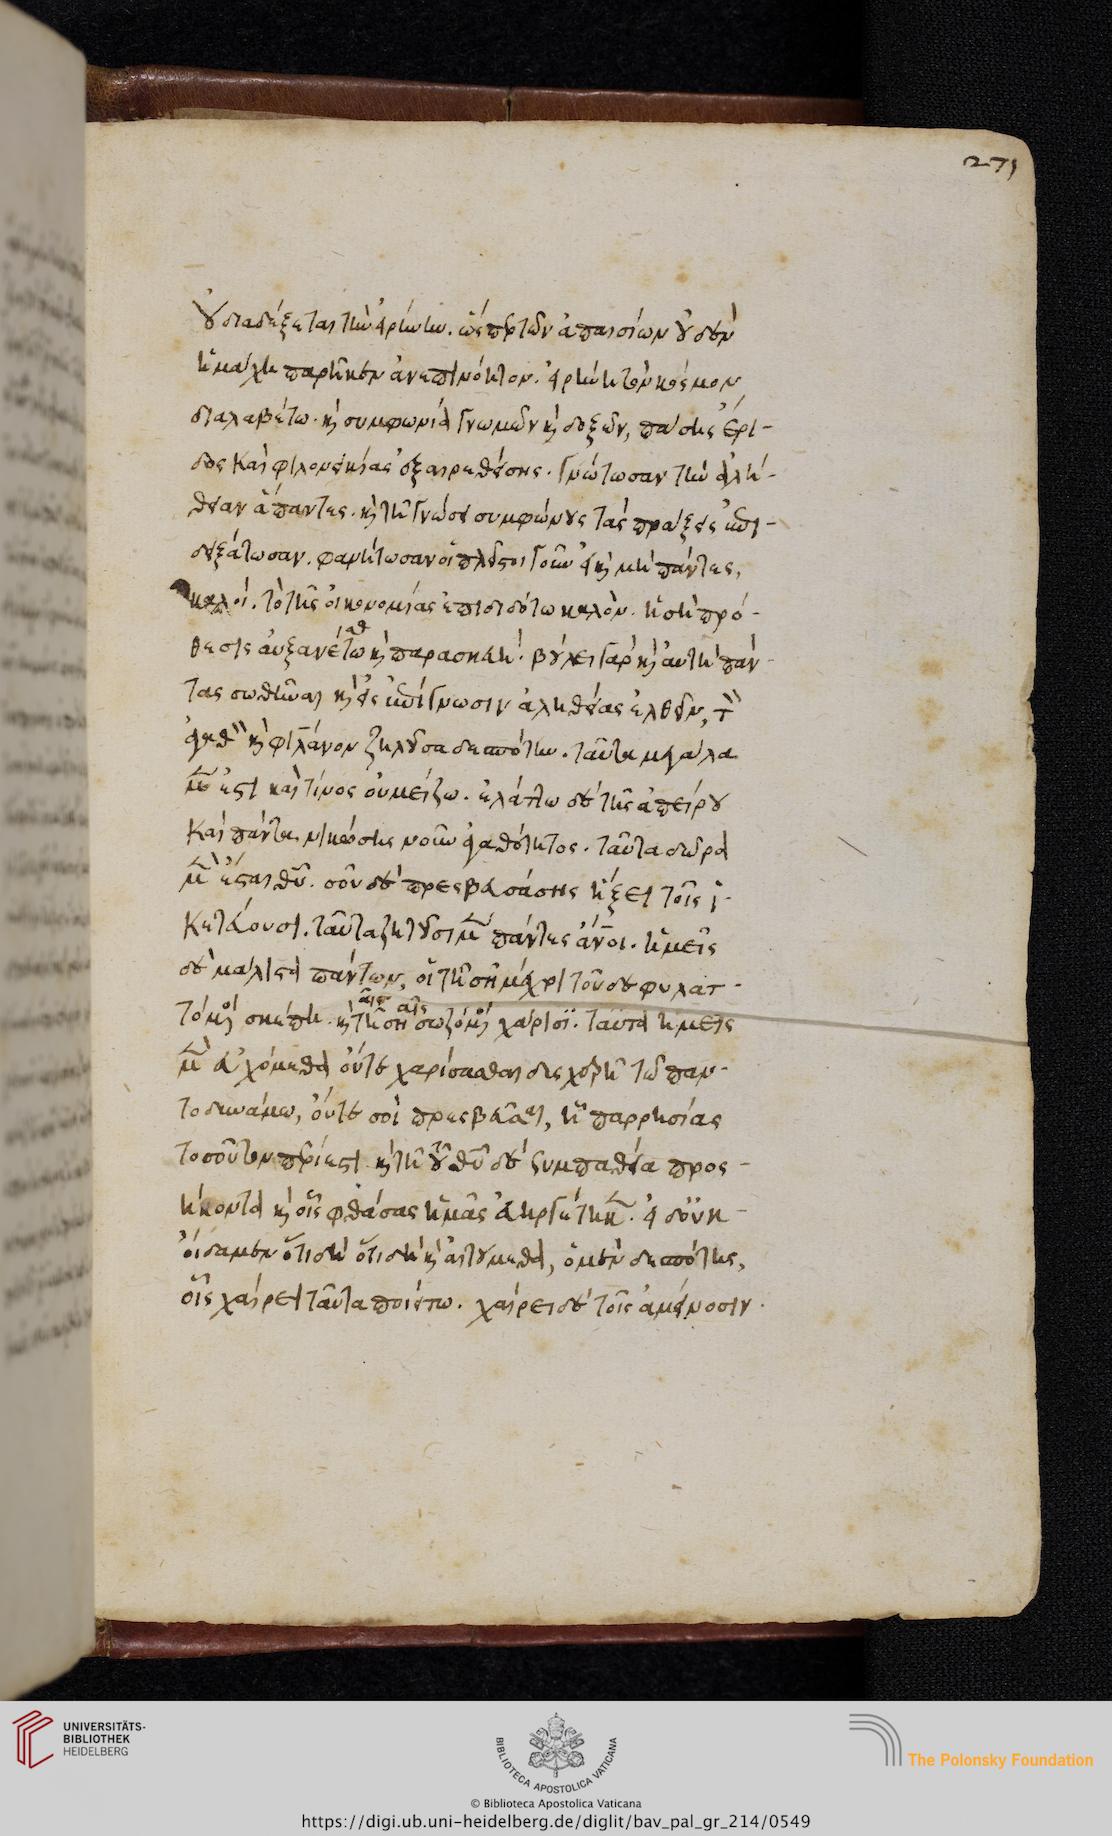 271
οὐ διαδέξεται τὴν εἰρήνην. ὡς πρὸ τῶν ἀπαισίων οὐδὲν
ἡ μάχη παρῆκεν ἀνεπινόητον. εἰρήνη τὸν κόσμον
διαλαβέτω. καὶ συμφωνία γνωμῶν καὶ δοξῶν, πάσης ἔρι-
δος καὶ φιλονεικίας ἐξαιρεθείσης. γνώτωσαν τὴν ἀλή-
θειαν ἅπαντες. καὶ τῇ γνώσει συμφώνους τὰς πράξεις ἐπι-
δειξάτωσαν. φανήτωσαν οἱ πλείστοι γοῦν εἰ καὶ μὴ πάντες,
καλοί. τὸ τῆς οἰκονομίας ἐπιδιδότω καλὸν. ἡ σὴ πρό-
θεσις αὐξανέτω καὶ παρασκευή. βούλει γὰρ καὶ αὐτὴ πάν-
τας σωθῆναι καὶ εἰς ἐπίγνωσιν ἀληθείας ἐλθεῖν, τὸν
ἀγαθὸν καὶ φιλάνον ζηλοῦσα δεσπότην. ταῦτα μεγάλα
μέν ἐστι καὶ τίνος οὐ μείζω. ἐλάττω δὲ τῆς ἀπείρου
καὶ πάντα νικώσης νοῦν ἀγαθότητος. ταῦτα δῶρα
μὲν ἔσται θυ. σοῦ δὲ πρεσβευσάσης ἥξει τοῖς ἱ-
κετεύουσι. ταῦτα ζητοῦσι μὲν πάντες ἄνοι. ἡμεῖς
δὲ μάλιστα πάντων, οἱ τῇ σῇ μέχρι τοῦδε φυλατ-
τόμενοι σκέπῃ. καὶ τῇ σῇ σωζόμενοι χάριτι. ταῦτα ἡμεῖς
αῖς αῖς
μὲν εὐχόμεθα οὔτε χαρίσασθαι δυσχερῆ τῷ παν-
τοδυνάμῳ, οὔτε σοὶ πρεσβεῦσαι, ᾗ παρρησίας
τοσοῦτον περίεστι. καὶ τῇ τοῦ θυ δὲ συμπαθείᾳ προσ-
ήκοντα καὶ οἷς φθάσας ἡμᾶς εὐηργέτηκεν. εἰ δ' οὐκ
οἴδαμεν ὅ τι δὴ ὅ τι δὴ καὶ αἰτούμεθα, ὁ μὲν δεσπότης,
οἷς χαίρει ταῦτα ποιείτω. χαίρει δὲ τοῖς ἀμείνοσιν.
UNIVERSITÄTS-
BIBLIOTHEK
HEIDELBERG
BIBLIOTECA APOSTOLICA VATICANA
© Biblioteca Apostolica Vaticana
The Polonsky Foundation
https://digi.ub.uni-heidelberg.de/diglit/bav_pal_gr_214/0549